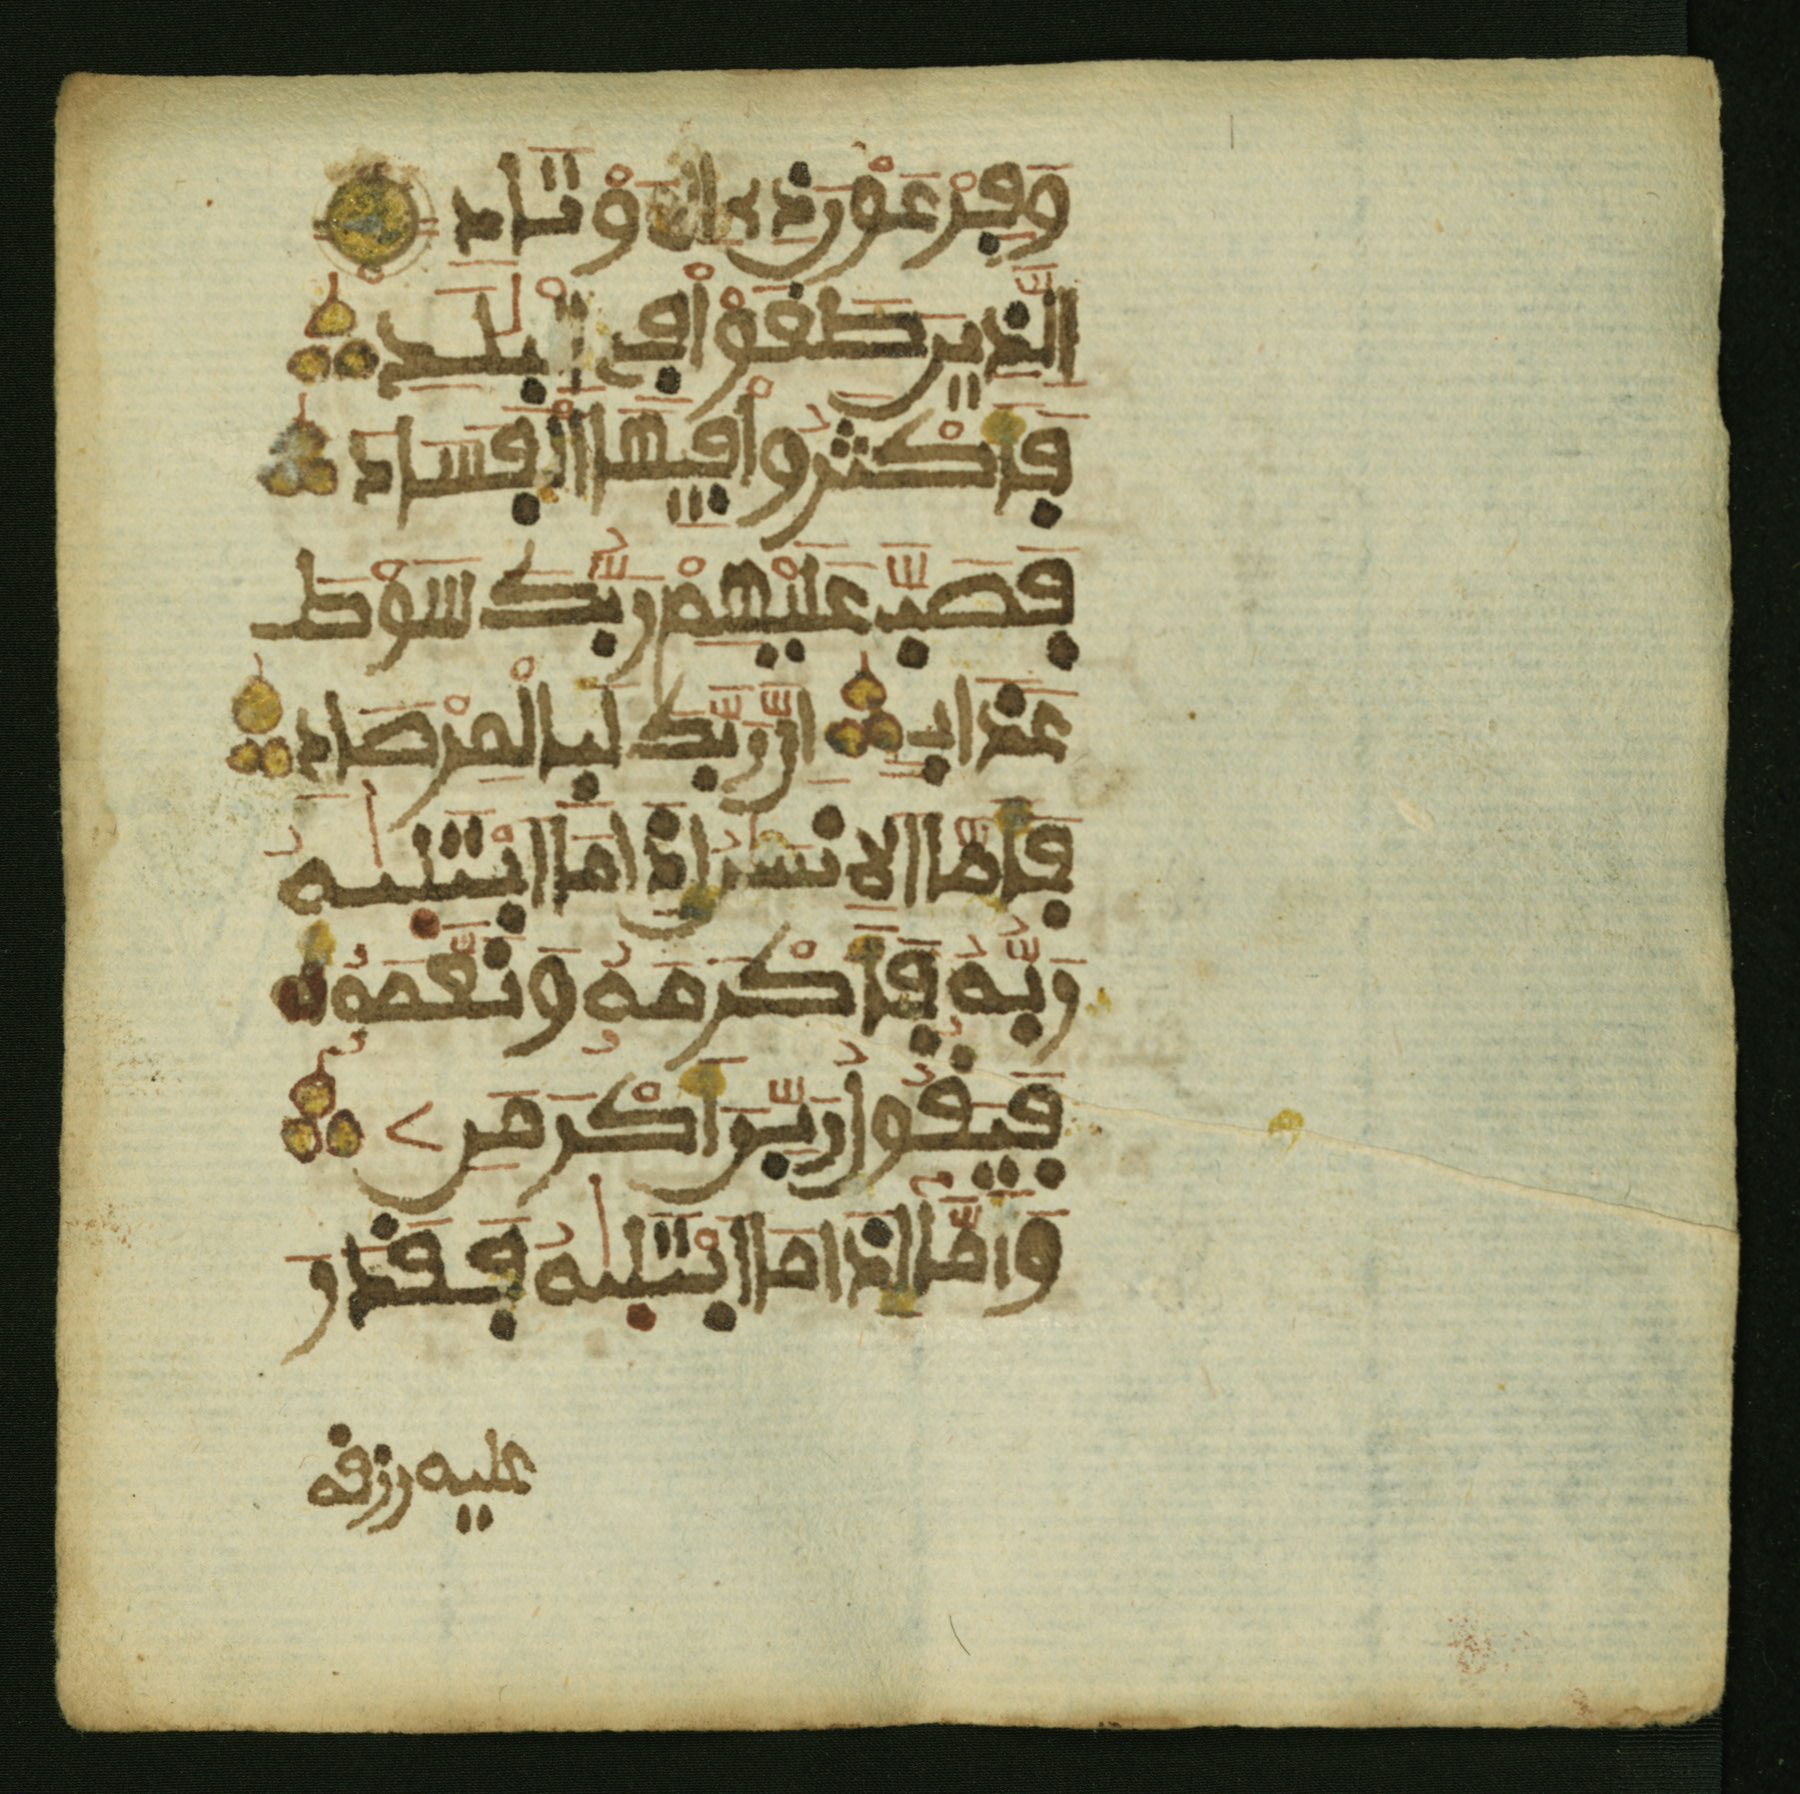 وَفِرْعَوْنَ ذِي الَاوْتَادِ
الَّذِينَ طَغَوْا فِي الْبِلَٰدِ
فَأَكْثَرُوا فِيهَا الْفَسَادَ
فَصَبَّ عَلَيْهِمْ رَبُّكَ سَوْطَ
عَذَابٍ إِنَّ رَبَّكَ لَبِالْمِرْصَادِ
فَأَمَّا الِانسَٰنُ إِذَا مَا ابْتَلَىٰهُ
رَبُّهُ فَأَكْرَمَهُ وَنَعَّمَهُ
فَيَقُولُ رَبِّيَ أَكْرَمَنِ
وَأَمَّا إِذَا مَا ابْتَلَىٰهُ فَقَدَرَ
عليه رزقه